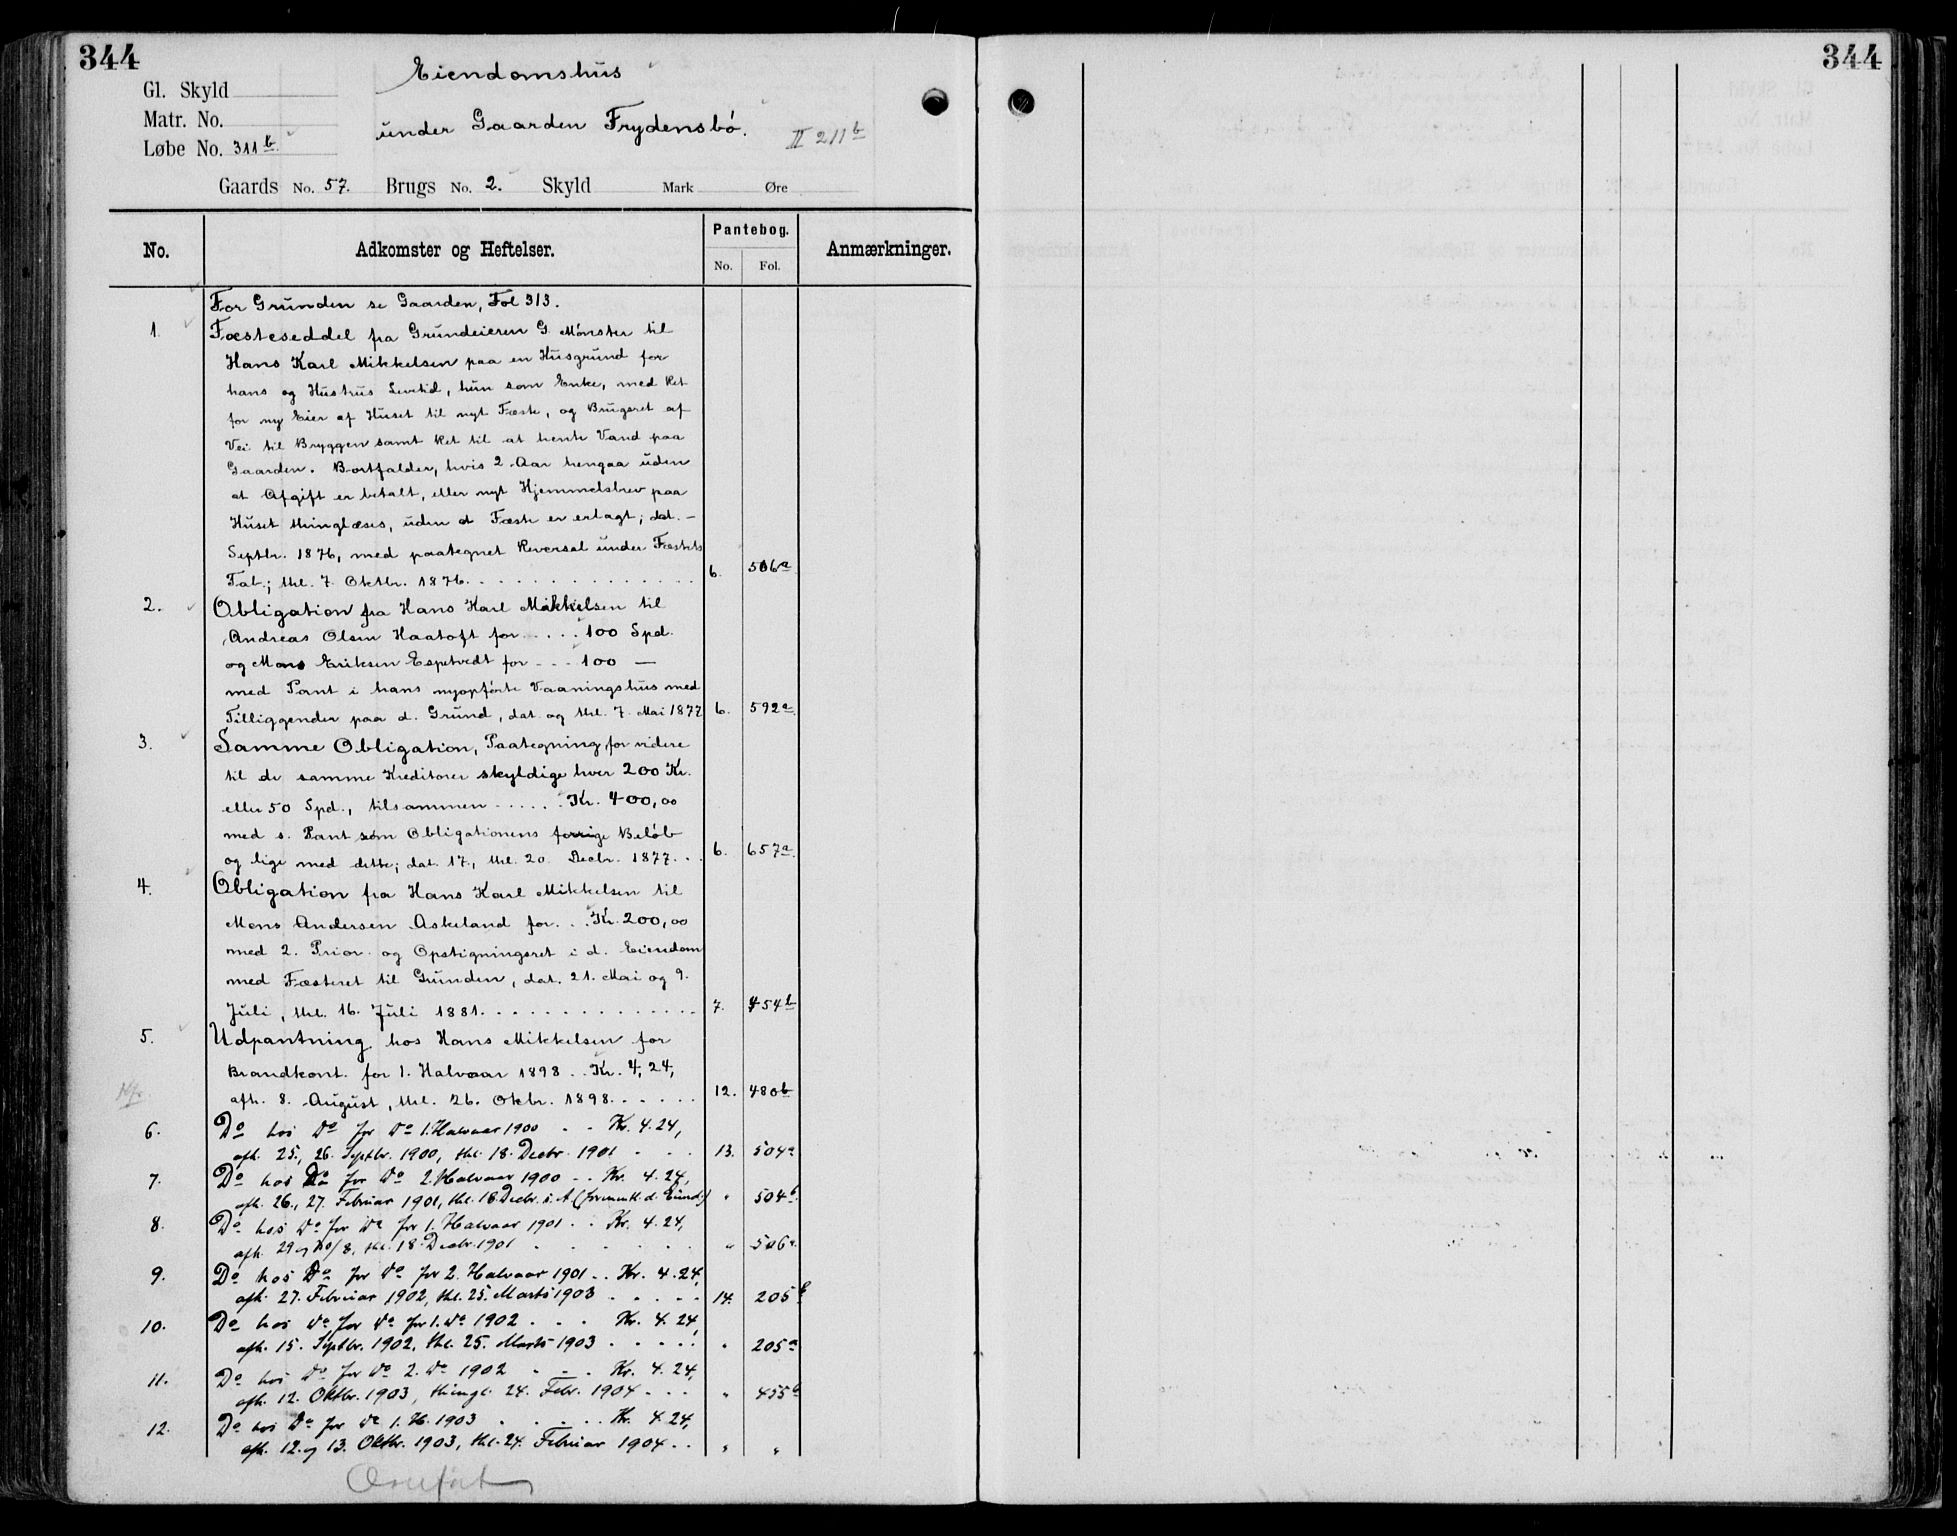 344
Eiendomshus
Gl. Skyld
Matr. No.
under Gaarden Frydensbø.
II 211b
Løbe No. 311b
Gaards No. 57. Brugs No. 2. Skyld Mark Øre
No. Adkomster og Heftelser. Pantebog. Anmærkninger.
No. Fol.
For Grunden se Gaarden, Fol 313.
1. Fæsteseddel fra Grundeieren G. Mønster til
Hans Karl Mikkelsen paa en Husgrund for
hans og Hustrus Levetid, hun som Enke, med Ret
for ny Eier af Huset til nyt Fæste, og Brugsret af
Vei til Bryggen samt Ret til at hente Vand paa
Gaarden. Bortfalder, hvis 2 Aar hengaa uden
at Afgift er betalt, eller nyt Hjemmelsbrev paa
Huset thinglæses, uden at Fæste er erlagt; dat. –
Septbr. 1876, med paategnet Reversal under Fæstets
Tab.; thl. 7. Oktbr. 1876. 6. 506a.
2. Obligation fra Hans Karl Mikkelsen til
Andreas Olsen Haatoft for . . . . 100 Spd.
og Mons Eriksen Espetvedt for . . . 100 —
med Pant i hans nyopførte Vaaningshus med
Tilliggender paa d. Grund, dat. og thl. 7. Mai 1877 6. 592a.
3. Samme Obligation, Paategning for videre
til de samme Kreditorer skyldige hver 200 Kr.
eller 50 Spd., tilsammen . . . . . Kr. 400,00
med s. Pant som Obligationens forrige Beløb
og lige med dette; dat. 17., thl. 20. Decbr. 1877. . . 6. 657a.
4. Obligation fra Hans Karl Mikkelsen til
Mons Andersen Askeland for . . Kr. 200,00
med 2. Prior. og Opstigningsret i d. Eiendom
med Fæsteret til Grunden, dat. 21. Mai og 9.
Juli, thl. 16. Juli 1881. 7. 454b
5. Udpantning hos Hans Mikkelsen for
Brandkont. for 1. Halvaar 1898 . . Kr. 4,24,
afh. 8. August, thl. 26. Oktbr. 1898. . . . . . 12. 480b
6. Do hos Do for Do 1. Halvaar 1900 . . Kr. 4.24,
afh. 25., 26. Septbr. 1900, thl. 18. Decbr. 1901 . . . 13. 504a
7. Do hos Do for Do 2. Halvaar 1900 . . Kr. 4.24,
afh. 26., 27. Februar 1901, thl. 18. Decbr. s. A. d. Eiend.) " 504b
8. Do hos Do for Do for 1. Halvaar 1901 . . Kr. 4.24,
afh. 29 og 30/8, thl. 18. Decbr. 1901 . . . . . " 506a.
9. Do hos Do for Do for 2. Halvaar 1901 . . Kr. 4.24,
afh. 27. Februar 1902, thl. 25. Marts 1903 . . . . . 14. 205
10. Do hos Do for Do for 1. Do 1902 . . . Kr. 4.24,
afh. 15. Septbr. 1902, thl. 25. Marts 1903 . . . . . " 205a
11. Do hos Do for Do 2. Do 1902 . . . Kr. 4.24,
afh. 12. Oktbr. 1903, thingl. 24. Febr. 1904 . . . " 455b
12. Do hos Do for Do 1. H. 1903 . . . . . Kr. 4.24,
afh. 12. og 13. Oktbr. 1903, thl. 24. Februar 1904 . . " "
Overført
344